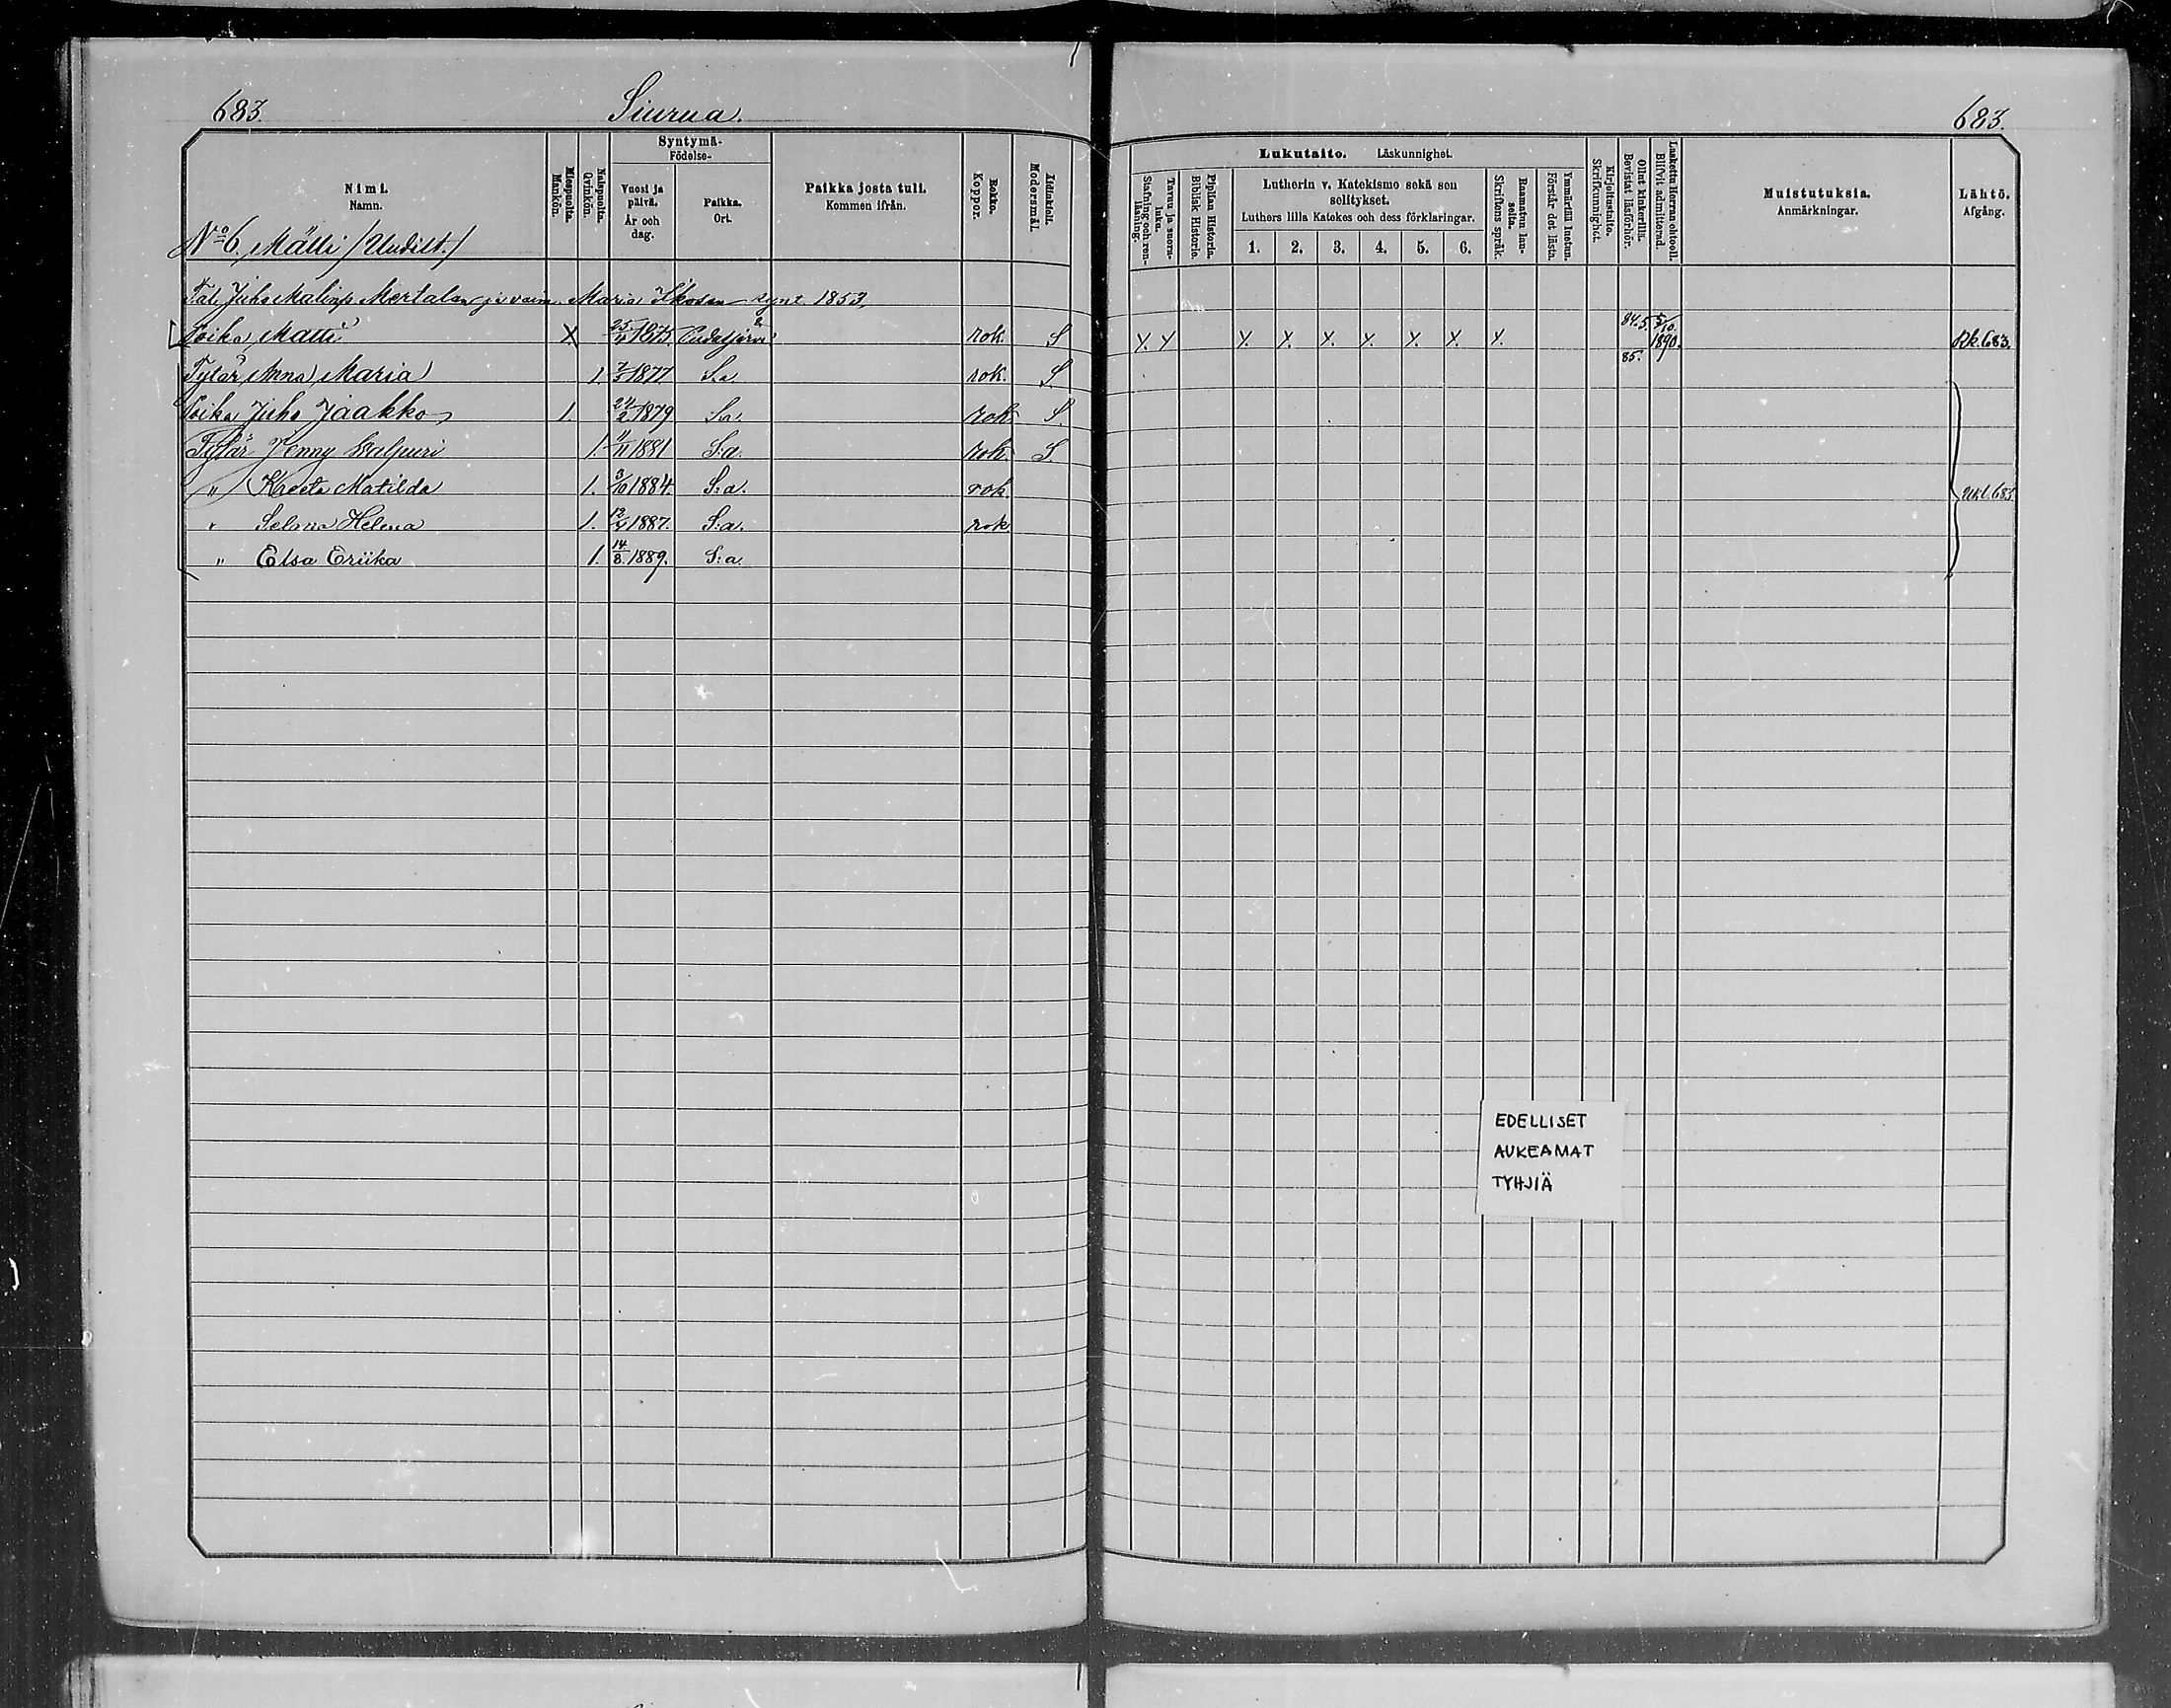 683 Siurua. 683.
Nimi. Namn.
Miespuolta. Mankön.
Naispuolta. Qvinkön.
Syntymä- Födelse-
Vuosi ja päivä. År och dag.
Paikka. Ort.
Paikka josta tuli. Kommen ifrån.
Rokko. Koppor.
Äidinkieli. Modersmål.
Tavuu ja suora-luku. Stafning och ren-läsning.
Piplian Historia. Biblisk Historie.
Lukutaito. Läskunnighet.
Lutherin v. Katekismo sekä sen selitykset.
Luthers lilla Katekes och dess förklaringar.
1. 2. 3. 4. 5. 6.
Raamatun lau-seita. Skriftens språk.
Ymmärtää luetun. Förstår det lästa.
Kirjoitustaito. Skrifkunnighet.
Ollut kinkerillä. Bevistat läsförhör.
Laskettu Herran ehtooll. Blifvit admitterad.
Muistutuksia. Anmärkningar.
Lähtö. Afgång.
No 6. Mätti /Uudist./
Tal. Juho Malinp. Mertalan ja vaim. Maria synt. 1853,
Poika Matti X 25/4 1875. Pudasjärvi rok. S X. X X. X. X. X. X. X. X. 84.5. 85. 5/10. 1890. Rk. 683.
Tytär Anna Maria 1. 7/3 1877. S:a rok. S.
Poika Juho Jaakko 1. 24/2 1879 S:a rok S.
Tytär Jenny Walpuri 1. 11/11 1881 S:a. rok. S.
" Kreeta Matilda 1. 3/10 1884. S:a. rok. 683
" Selma Helena 1. 12/4 1887. S:a. rok
" Elsa Eriika 1. 14/8. 1889. S:a.
EDELLISET
AUKEAMAT
TYHJIÄ